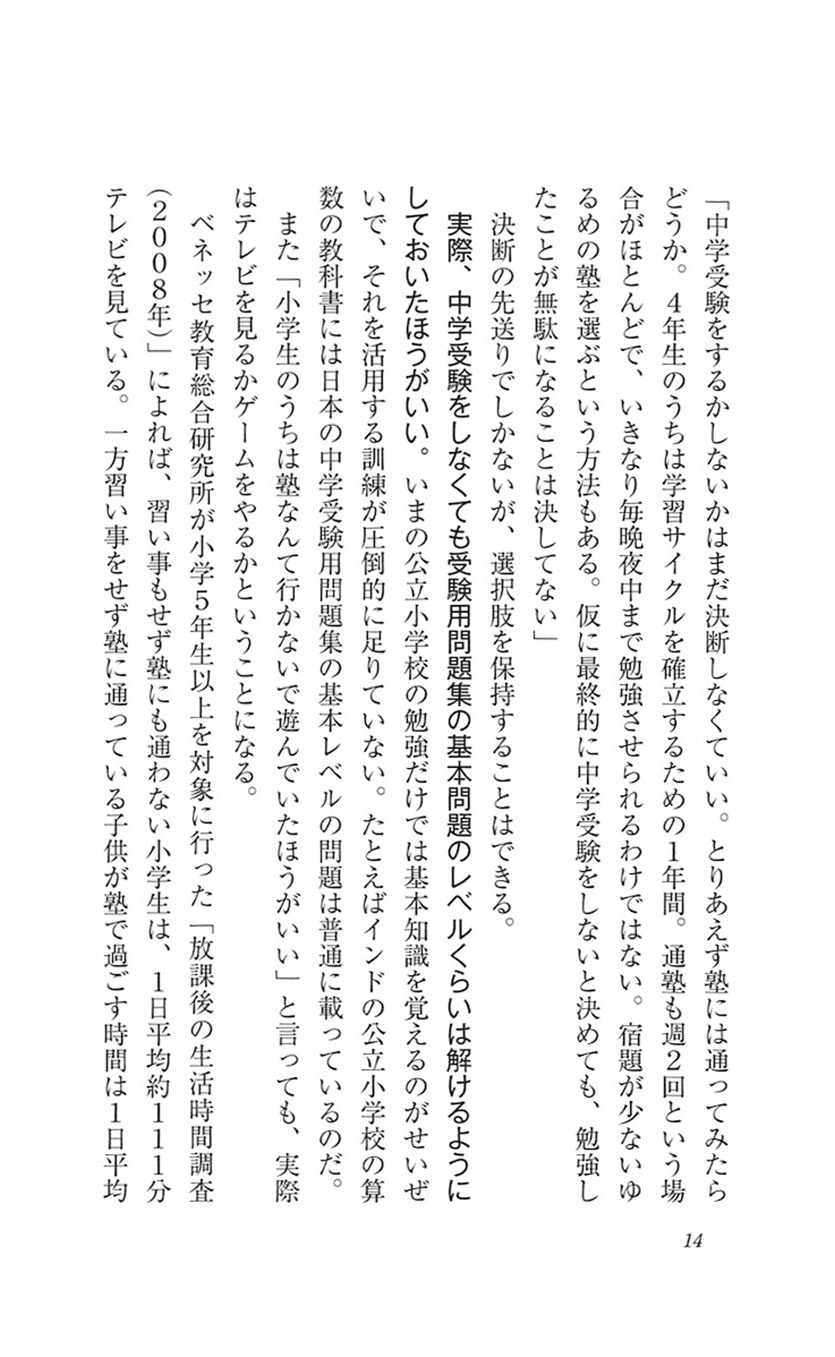 「中学受験をするかしないかはまだ決断しなくていい。とりあえず塾には通ってみたら
どうか。４年生のうちは学習サイクルを確立するための１年間。通塾も週２回という場
合がほとんどで、いきなり毎晩夜中まで勉強させられるわけではない。宿題が少ないゆ
るめの塾を選ぶという方法もある。仮に最終的に中学受験をしないと決めても、勉強し
たことが無駄になることは決してない」
決断の先送りでしかないが、選択肢を保持することはできる。
実際、中学受験をしなくても受験用問題集の基本問題のレベルくらいは解けるように
しておいたほうがいい。いまの公立小学校の勉強だけでは基本知識を覚えるのがせいぜ
いで、それを活用する訓練が圧倒的に足りていない。たとえばインドの公立小学校の算
数の教科書には日本の中学受験用問題集の基本レベルの問題は普通に載っているのだ。
また「小学生のうちは塾なんて行かないで遊んでいたほうがいい」と言っても、実際
はテレビを見るかゲームをやるかということになる。
ベネッセ教育総合研究所が小学５年生以上を対象に行った「放課後の生活時間調査
（２００８年）」によれば、習い事もせず塾にも通わない小学生は、１日平均約１１１分
テレビを見ている。一方習い事をせず塾に通っている子供が塾で過ごす時間は１日平均
14